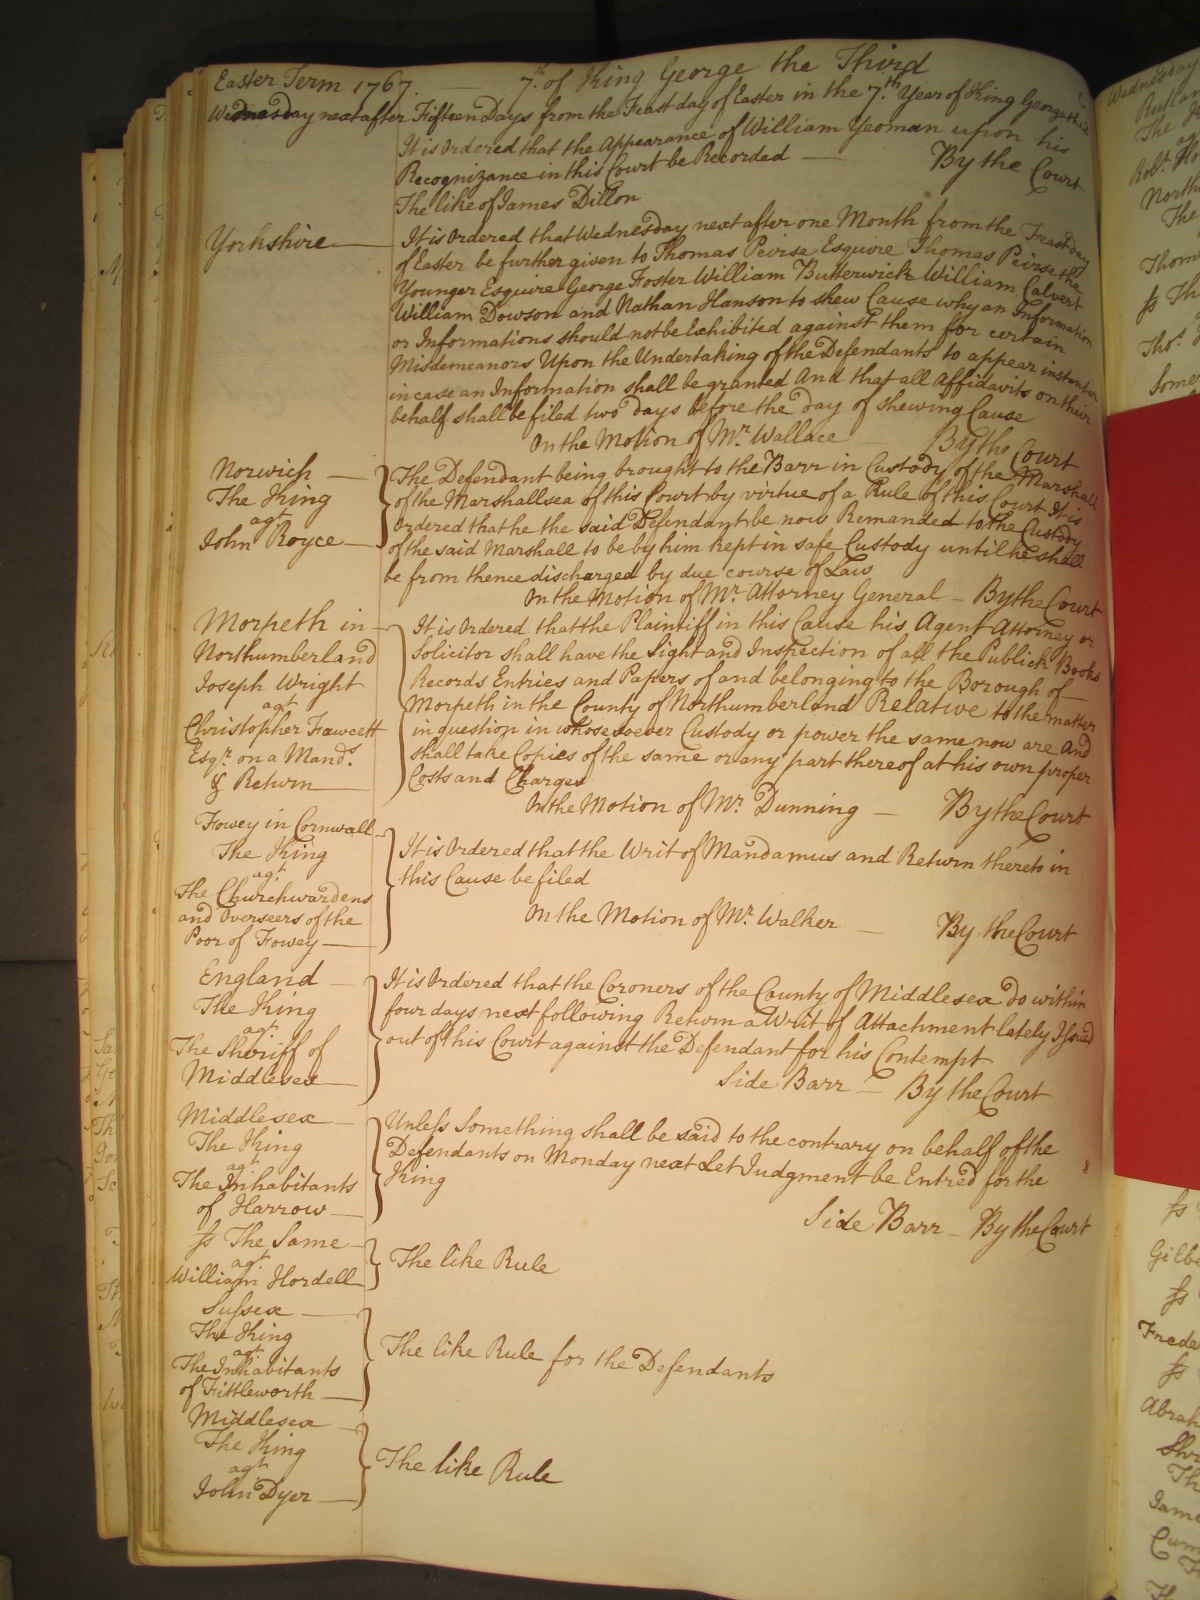 Easter Term 1767. 7.th of King George the Third
Wednesday next after Fifteen Days from the Feast day of Easter in the 7.th Year of King George the 3d
It is Ordered that the Appearance of William Yeoman upon his
Recognizance in this Court be Recorded — By the Court
The like of James Dillon
Yorkshire —
It is Ordered that Wednesday next after one Month from the Feast day
of Easter be further given to Thomas Peirse Esquire Thomas Peirse the
Younger Esquire George Foster William Butterwick William Calvert
William Dowson and Nathan Hanson to shew Cause why an Information
or Informations should not be Exhibited against them for certain
Misdemeanors Upon the Undertaking of the Defendants to appear instanter
in case an Information shall be granted And that all Affidavits on their
behalf shall be filed two days before the day of shewing Cause
On the Motion of Mr. Wallace — By the Court
Norwich —
The King
agt
John Royce —
The Defendant being brought to the Barr in Custody of the Marshall
of the Marshallsea of this Court by virtue of a Rule of this Court It is
Ordered that he the said Defendant be now Remanded to the Custody
of the said Marshall to be by him kept in safe Custody until he shall
be from thence discharged by due course of Law
On the Motion of Mr. Attorney General — By the Court
Morpeth in
Northumberland
Joseph Wright
agt
Christopher Fawcett
Esqr. on a Mands.
& Return
It is Ordered that the Plaintiff in this Cause his Agent Attorney or
Solicitor shall have the Sight and Inspection of all the Publick Books
Records Entries and Papers of and belonging to the Borough of
Morpeth in the County of Northumberland Relative to the matter
in question in whosesoever Custody or power the same now are And
shall take Copies of the same or any part thereof at his own proper
Costs and Charges
On the Motion of Mr. Dunning — By the Court
Fowey in Cornwall
The King
agt
The Churchwardens
and Overseers of the
Poor of Fowey —
It is Ordered that the Writ of Mandamus and Return thereto in
this Cause be filed
On the Motion of Mr. Walker — By the Court
England —
The King
agt
The Sheriff of
Middlesex —
It is Ordered that the Coroners of the County of Middlesex do within
four days next following Return a Writ of Attachment lately Issued
out of this Court against the Defendant for his Contempt
Side Barr — By the Court
Middlesex —
The King
agt
The Inhabitants
of Harrow —
Unless Something shall be said to the contrary on behalf of the
Defendants on Monday next Let Judgment be Entred for the
King
Side Barr — By the Court
ss The Same
agt
William Hordell
The like Rule
Sussex —
The King
agt
The Inhabitants
of Fittleworth —
The like Rule for the Defendants
Middlesex —
The King
agt
John Dyer —
The like Rule